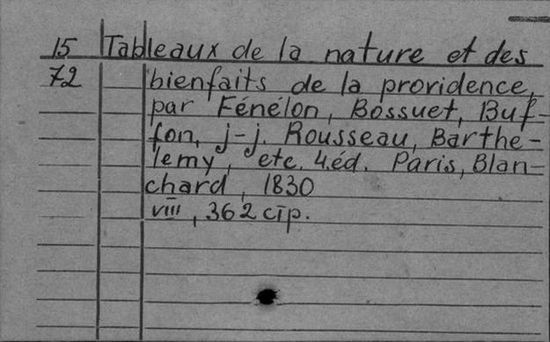 15 Tableaux de la nature et des
72 bienfaits de la providence,
par Fénélon, Bossuet, Buf-
fon, j-j. Rousseau, Barthe-
lemy, etc. 4.éd. Paris, Blan-
chard, 1830
VIII, 362 cīp.